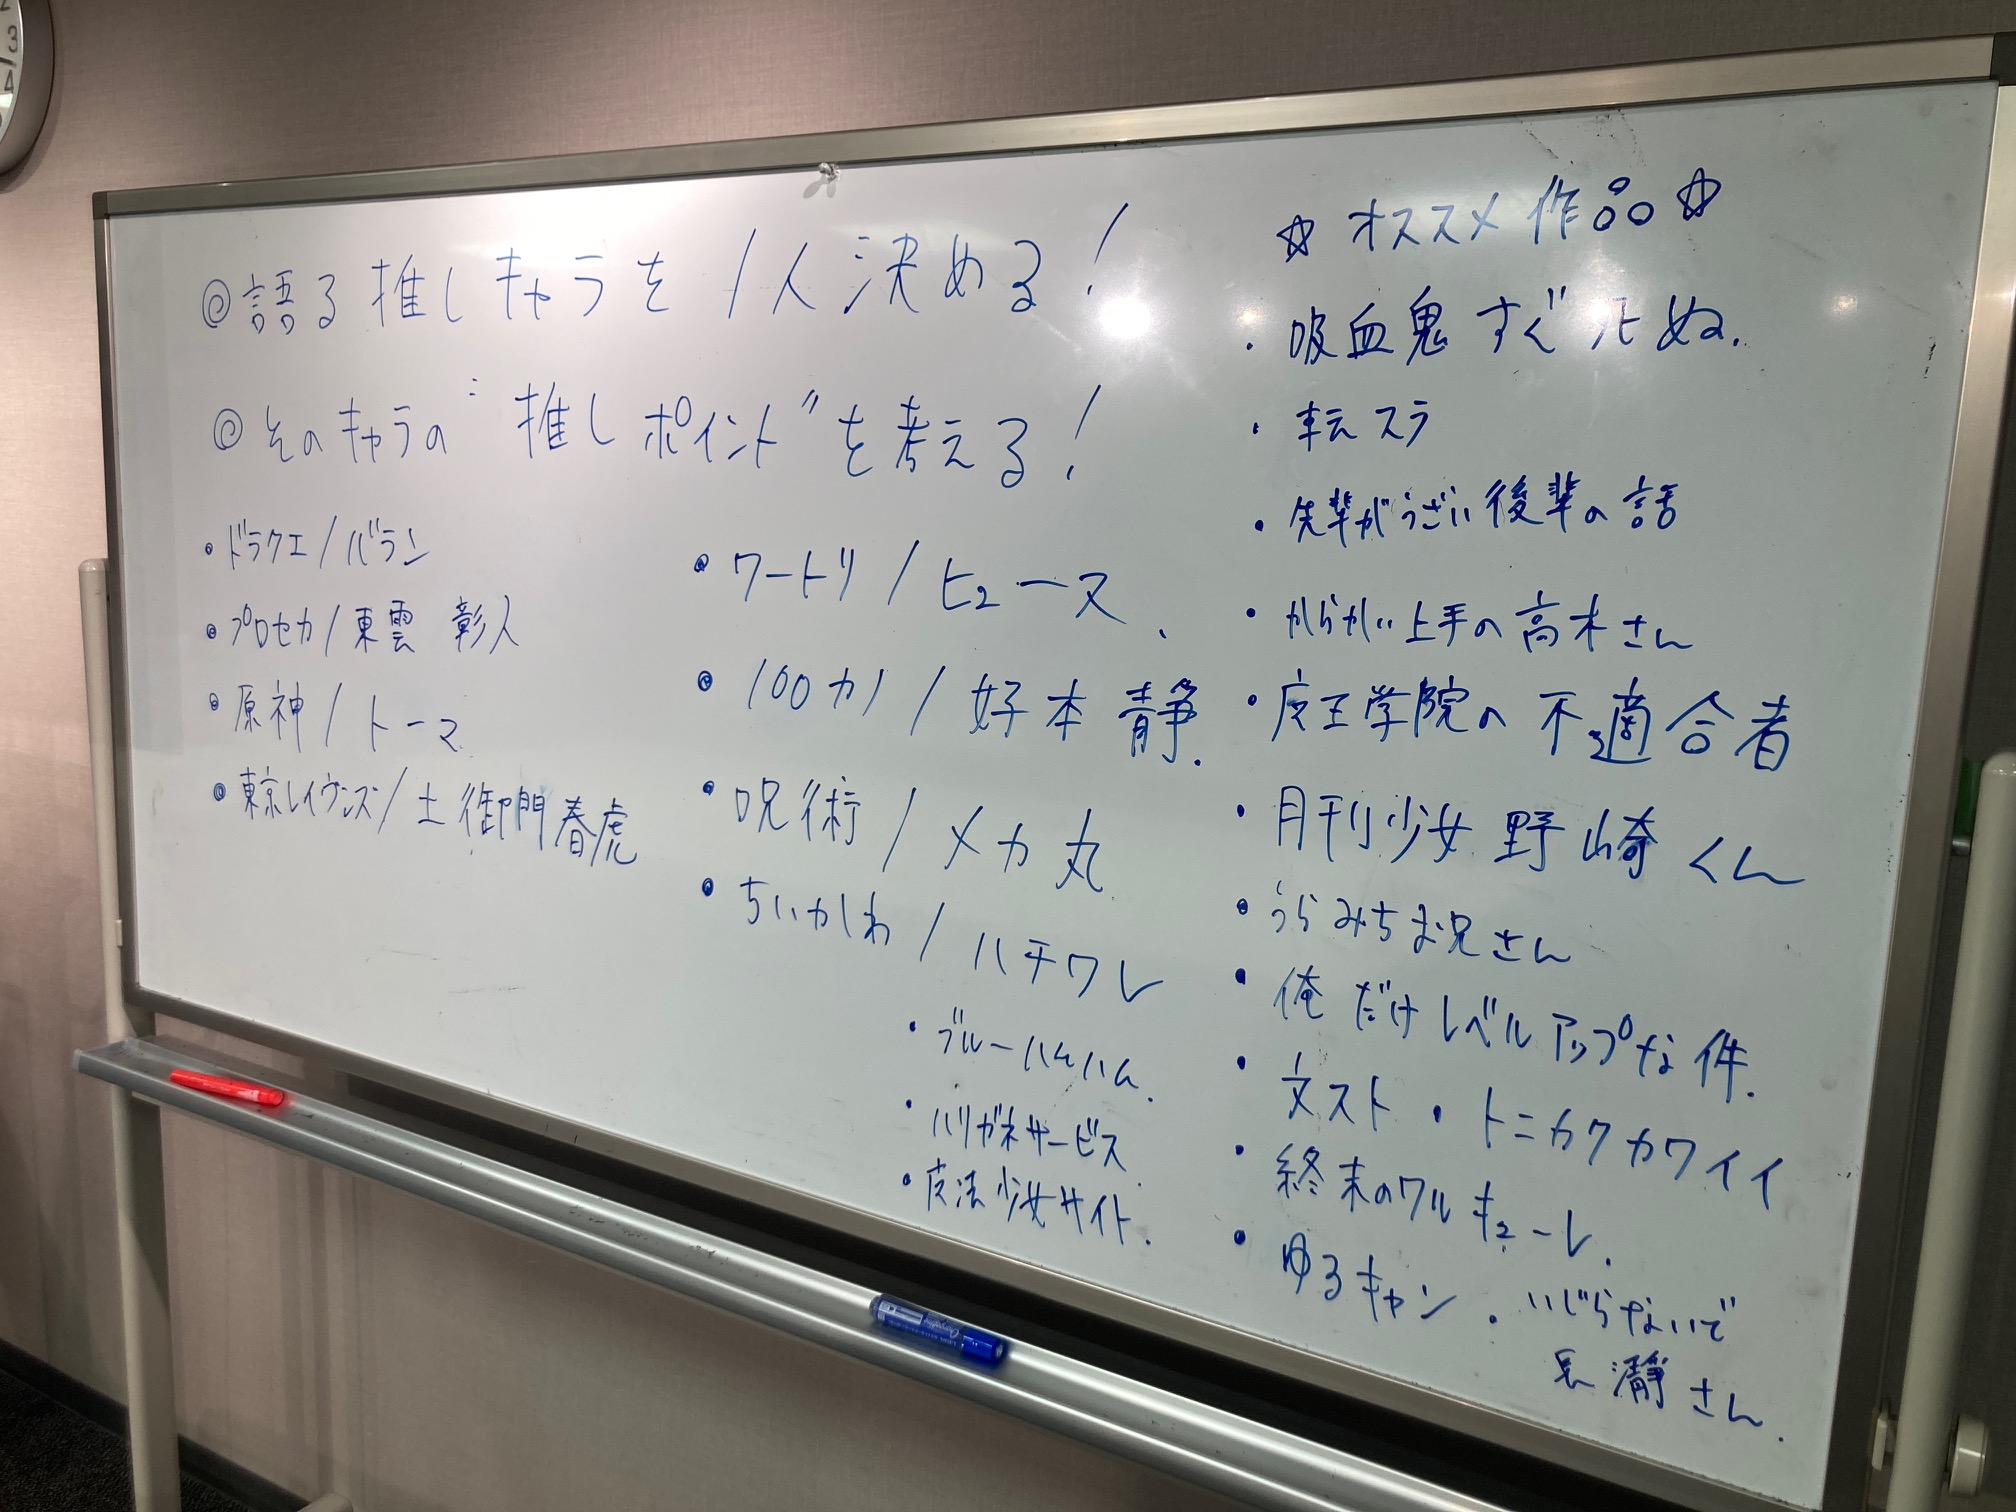 ◎語る推しキャラを1人決める!
◎そのキャラの"推しポイント"を考える!
・ドラクエ/バラン
・プロセカ/東雲 彰人
・原神/トーマ
・東京レイヴンズ/土御門春虎
・ワートリ/ヒュース
・100カノ/好本 静.
・呪術/メカ丸
・ちいかわ/ハチワレ
・ブルーハムハム.
・ハリガネサービス
・魔法少女サイト.
☆オススメ作品☆
・吸血鬼すぐ死ぬ.
・転スラ
・先輩がうざい後輩の話
・からかい上手の高木さん
・魔王学院の不適合者
・月刊少女野崎くん
・うらみちお兄さん
・俺だけレベルアップな件.
・文スト・トニカクカワイイ
・終末のワルキューレ.
・ゆるキャン・いじらないで
長瀞さん.
3
4